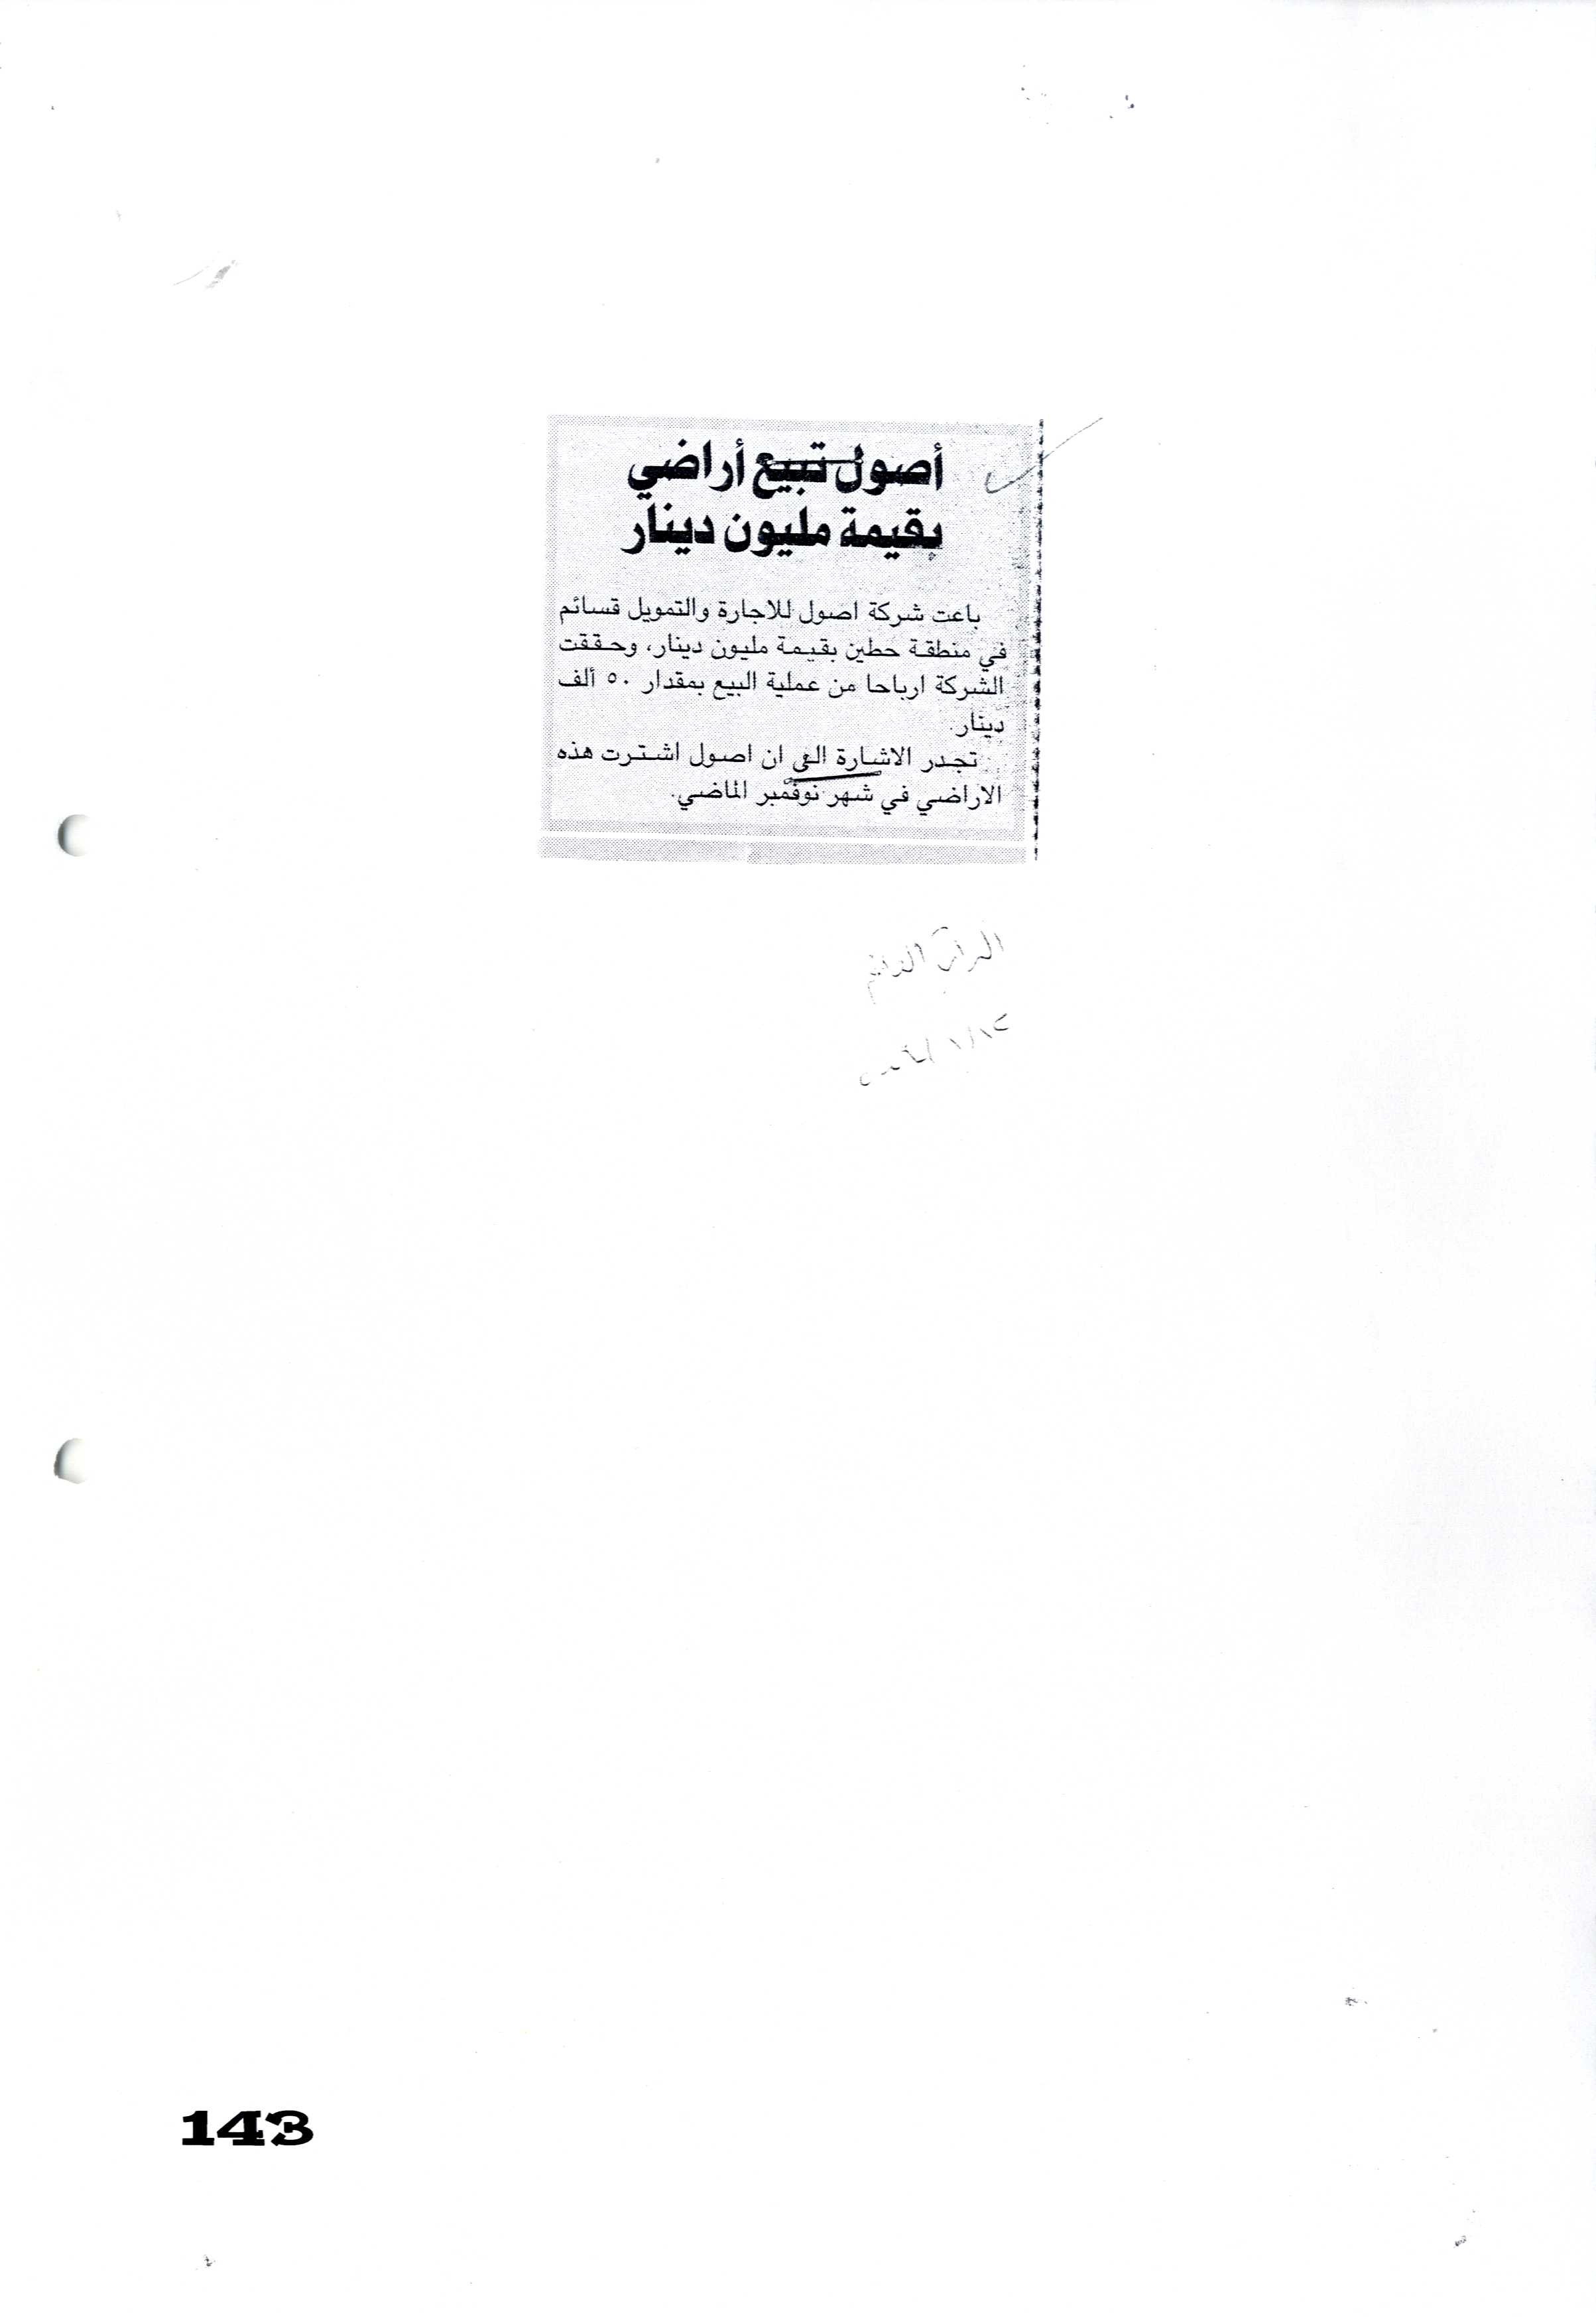 أصول تبيع أراضي
بقيمة مليون دينار
باعت شركة اصول للاجارة والتمويل قسائم
في منطقة حطين بقيمة مليون دينار، وحققت
الشركة ارباحا من عملية البيع بمقدار ٥٠ ألف
دينار.
تجدر الاشارة الى ان اصول اشترت هذه
الاراضي في شهر نوفمبر الماضي.
143